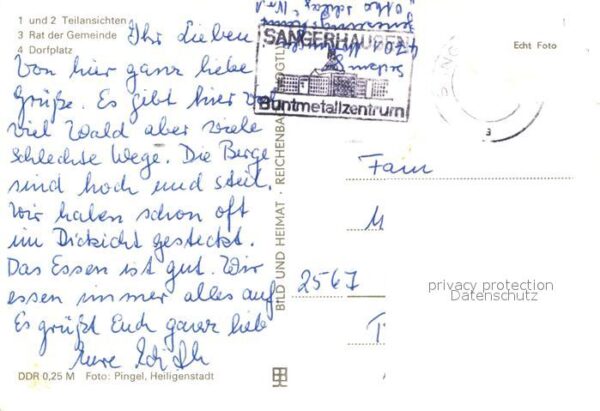 1 und 2 Teilansichten
3 Rat der Gemeinde
4 Dorfplatz
Ihr Lieben
Von hier ganz liebe
Grüße. Es gibt hier
viel Wald aber viele
schlechte Wege. Die Berge
sind hoch und steil.
Wir haben schon oft
im Dickicht gesteckt.
Das Essen ist gut. Wir
essen immer alles auf
Es grüßt Euch ganz lieb
Eure
DDR 0,25 M Foto: Pingel, Heiligenstadt
BILD UND HEIMAT · REICHENBACH
SANGERHAUSEN
Buntmetallzentrum
4701
"Otto Schlag" Nr. 1
Echt Foto
Fam
M
2567
T
privacy protection
Datenschutz